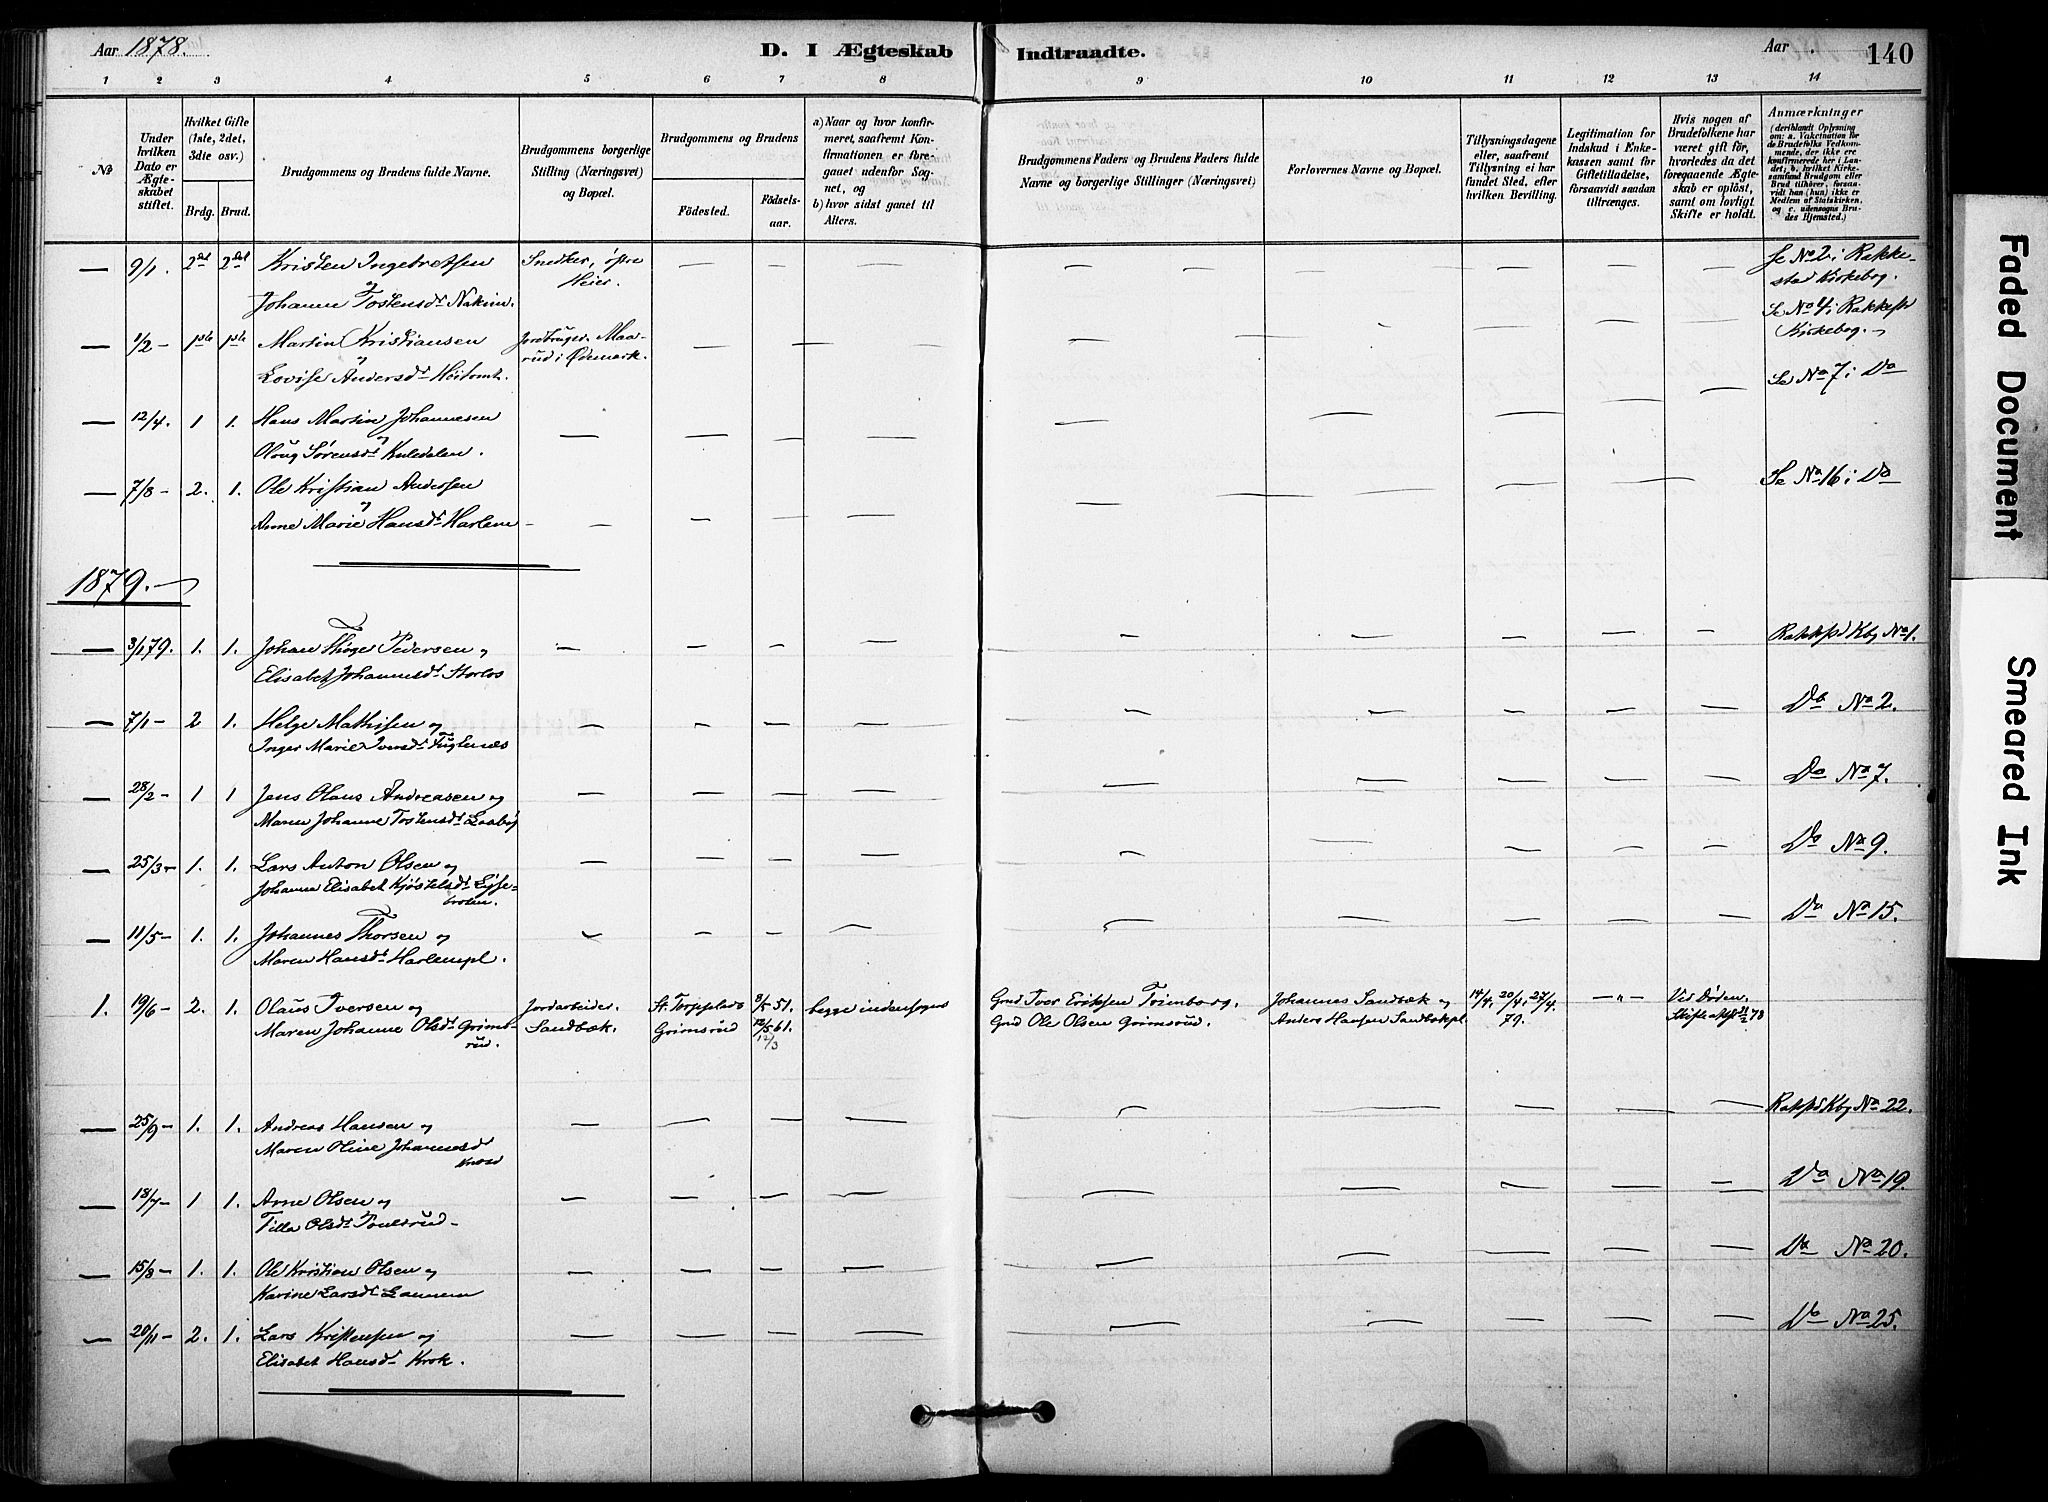 Aar 1878.
D. I Ægteskab Indtraadte.
Aar
140
1 2 3 4 5 6 7 8 9 10 11 12 13 14
No
Under hvilken Dato er Ægteskabet stiftet.
Hvilket Gifte (1ste, 2det, 3die osv.)
Brdg. Brud.
Brudgommens og Brudens fulde Navne.
Brudgommens borgerlige Stilling (Næringsvei) og Bopæl.
Brudgommens og Brudens
Födested.
Födselsaar.
a) Naar og hvor konfirmeret, saafremt Konfirmationen er foregaaet udenfor Sognet, og
b) hvor sidst ganet til Alters.
Brudgommens Faders og Brudens Faders fulde Navne og borgerlige Stillinger (Næringsvei)
Forlovernes Navne og Bopæl.
Tillysningsdagene eller, saafremt Tillysning ei har fundet Sted, efter hvilken Bevilling.
Legitimation for Indskud i Enkekassen samt for Giftetilladelse, forsaavidt saadan tiltrænges.
Hvis nogen af Brudefolkene har været gift för, hvorledes da det foregaaende Ægteskab er oplöst, samt om lovligt Skifte er holdt.
Anmærkninger (deriblandt Oplysning om: a. Vakcination for de Brudefolks Vedkommende, der ikke ere konfirmerede her i Landet; b. hvilket Kirkesamfund Brudgom eller Brud tilhörer, forsavidt han (hun) ikke er Medlem af Statskirken, og c. udensogns Brudes Hjemsted.)
— 9/1. 2det 2det Kristen Ingebretsen Snedker, østre — — — — — — — — Se No 2 i Rakke-
og Heier. stad Kirkebog.
Johanne Tostensdr Nakim.
— 1/2 – 1ste 1ste Martin Kristiansen Jordbruger Maa- — — — — — — — — Se No 4 i Rakkest
og rud i Ødemark. Kirkebog. –
Lovise Andersdr Høitomt.
— 12/4. 1 1. Hans Martin Johannesen — — — — — — — — — Se No 7 i Do
og
Oloug Sørensdr Kuledalen.
— 7/8 – 2. 1. Ole Kristian Andersen — — — — — — — — — Se No 16 i Do
og
Anne Marie Hansdr Harlem –
1879. –
— 3/1 79. 1. 1. Johan Thøger Pedersen og — — — — — — — — — Rakkstd Kbg No 1.
Elisabet Johannesdr Storlos
— 7/1 – 2 1. Helge Mathisen og — — — — — — — — — Do No 2.
Inger Marie Iversdr Fuglenæs
— 28/2 – 1 1 Jens Olaus Andreasen og — — — — — — — — — Do No 7.
Maren Johanne Tostensdr
— 25/3 – 1. 1. Lars Anton Olsen og — — — — — — — — — Do No 9.
Johanne Elisabet Kjøstelsdr
— 11/5 – 1. 1. Johannes Thorsen og — — — — — — — — — Do No 15.
Maren Hansdr Harlempl.
1. 19/6 – 2. 1. Olaus Iversen og Jordarbeider. St. 8/5 51. begge indensogns Gmd Iver Eriksen Tømborg. Johannes Sandbæk og 14/4. 20/4. 27/4. —„— Ved Døden.
Maren Johanne Olsdr Grims- Sandbæk. Grimsrud 12/5 61. Gmd Ole Olsen Grimsrud. Anders Hansen Sandbækpl. 79. 78
rud. 12/3
— 25/9 – 1. 1. Andreas Hansen og — — — — — — — — — Rakkstd Kbg No 22.
Maren Oline Johannesdr
— 18/7 – 1 1. Arne Olsen og — — — — — — — — — Do No 19.
Tilla Olsdr Poulsrud –
— 15/8 – 1. 1. Ole Kristian Olsen og — — — — — — — — — Do No 20.
Karine Larsdr Lannem
— 20/11 – 2. 1. Lars Kristensen og — — — — — — — — — Do No 25.
Elisabet Hansdr Krok.
Faded Document
Smeared Ink